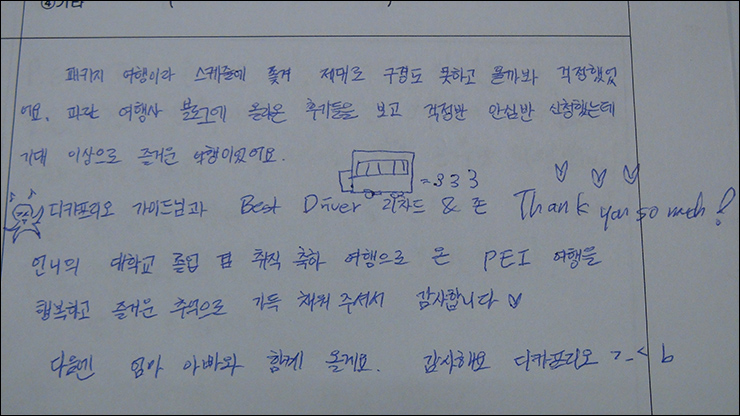 ④기타
패키지 여행이라 스케줄에 쫓겨 제대로 구경도 못하고 올까봐 걱정했었
어요. 파란 여행사 블로그에 올라온 후기들을 보고 걱정반 안심반 신청했는데
기대 이상으로 즐거운 여행이었어요.
디카프리오 가이드님과 Best Driver 리차드 & 존 Thank you so much!
언니의 대학교 졸업 및 취직 축하 여행으로 온 PEI 여행을
행복하고 즐거운 추억으로 가득 채워 주셔서 감사합니다 ♡
다음엔 엄마 아빠와 함께 올게요. 감사해요 디카프리오 >_< b